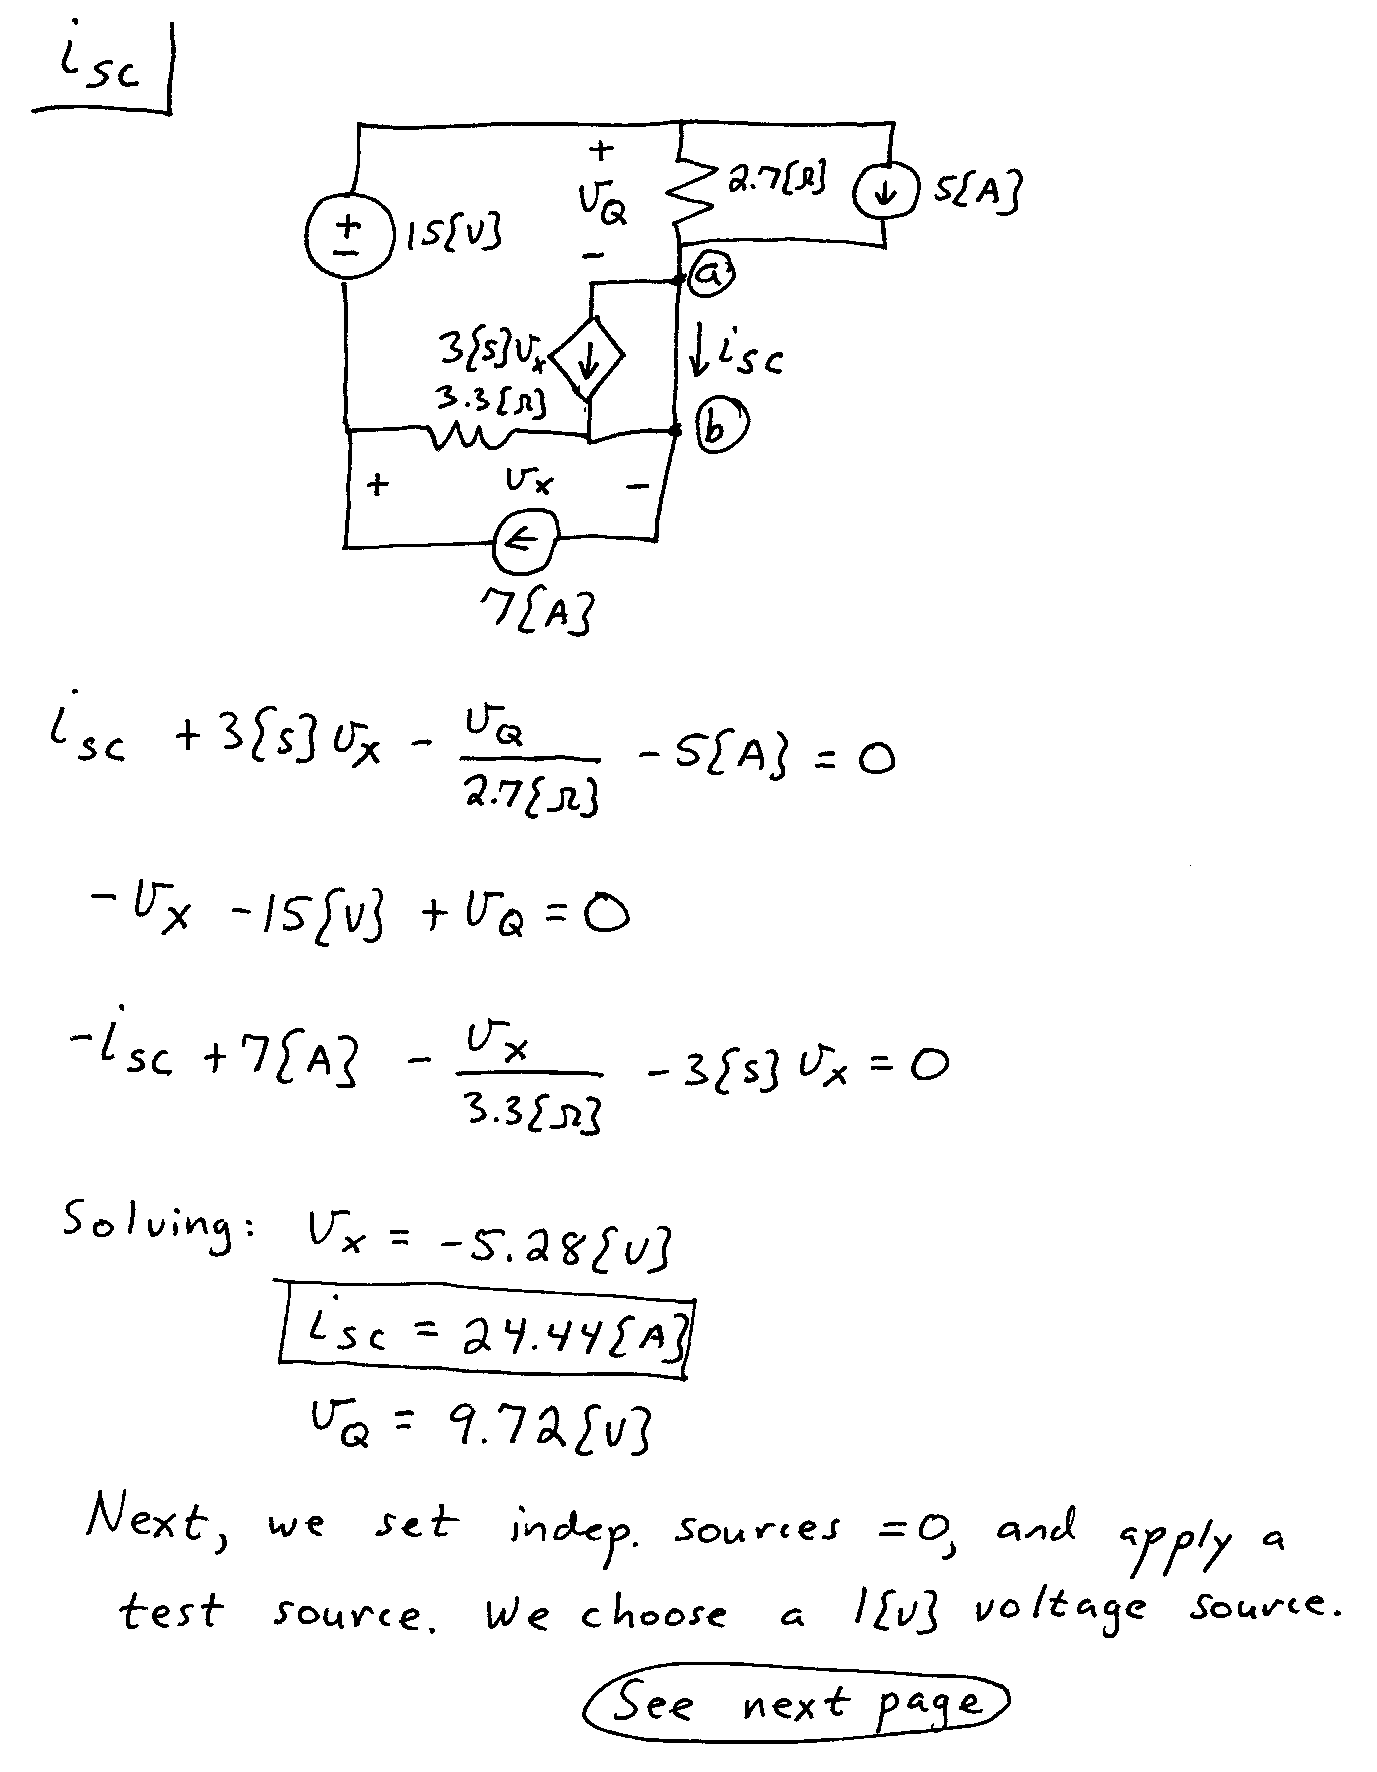 isc
+
vQ
-
2.7{Ω}
5{A}
+
-
15{V}
a
3{S}vx
isc
3.3{Ω}
b
+ vx -
7{A}
isc + 3{S}vx - vQ/2.7{Ω} - 5{A} = 0
-vx - 15{V} + vQ = 0
-isc + 7{A} - vx/3.3{Ω} - 3{S}vx = 0
Solving: vx = -5.28{V}
isc = 24.44{A}
vQ = 9.72{V}
Next, we set indep. sources =0, and apply a
test source. We choose a 1{V} voltage source.
See next page